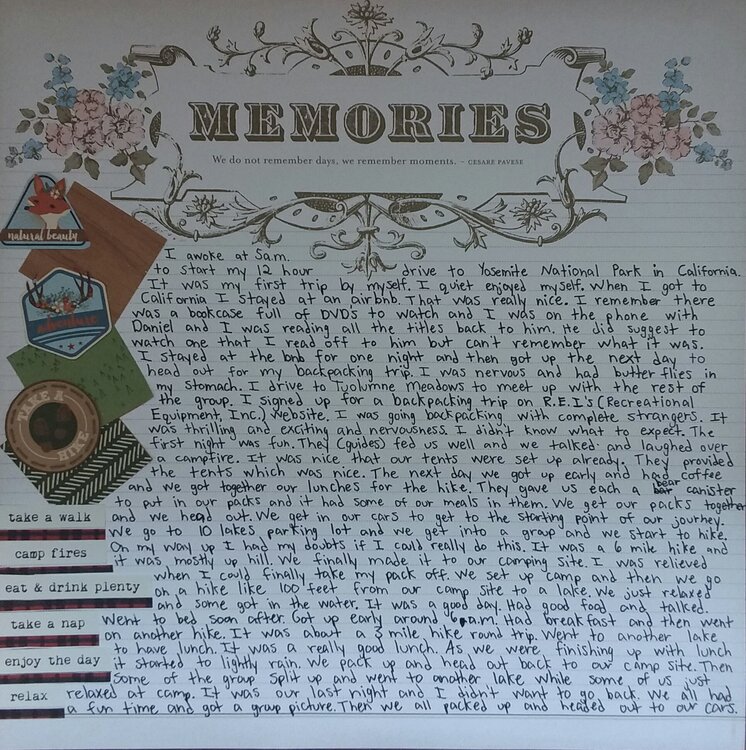 MEMORIES
We do not remember days, we remember moments. ~ CESARE PAVESE
natural beauty
adventure
TAKE A HIKE
I awoke at 5a.m.
to start my 12 hour drive to Yosemite National Park in California.
It was my first trip by myself. I quiet enjoyed myself. When I got to
California I stayed at an airbnb. That was really nice. I remember there
was a bookcase full of DVD's to watch and I was on the phone with
Daniel and I was reading all the titles back to him. He did suggest to
watch one that I read off to him but can't remember what it was.
I stayed at the bnb for one night and then got up the next day to
head out for my backpacking trip. I was nervous and had butter flies in
my stomach. I drive to Tuolumne Meadows to meet up with the rest of
the group. I signed up for a backpacking trip on R.E.I.'s (Recreational
Equipment, Inc.) Website. I was going backpacking with complete strangers. It
was thrilling and exciting and nervousness. I didn't know what to expect. The
first night was fun. They (guides) fed us well and we talked and laughed over
a campfire. It was nice that our tents were set up already. They provided
the tents which was nice. The next day we got up early and had coffee
and we got together our lunches for the hike. They gave us each a bear canister
to put in our packs and it had some of our meals in them. We get our packs together
and we head out. We get in our cars to get to the starting point of our journey.
We go to 10 lakes parking lot and we get into a group and we start to hike.
On my way up I had my doubts if I could really do this. It was a 6 mile hike and
it was mostly up hill. We finally made it to our camping site. I was relieved
when I could finally take my pack off. We set up camp and then we go
on a hike like 100 feet from our camp site to a lake. We just relaxed
and some got in the water. It was a good day. Had good food and talked.
Went to bed soon after. Got up early around 6 a.m. Had breakfast and then went
on another hike. It was about a 3 mile hike round trip. Went to another lake
to have lunch. It was a really good lunch. As we were finishing up with lunch
it started to lightly rain. We pack up and head out back to our camp site. Then
some of the group split up and went to another lake while some of us just
relaxed at camp. It was our last night and I didn't want to go back. We all had
a fun time and got a group picture. Then we all packed up and headed out to our cars.
take a walk
camp fires
eat & drink plenty
take a nap
enjoy the day
relax